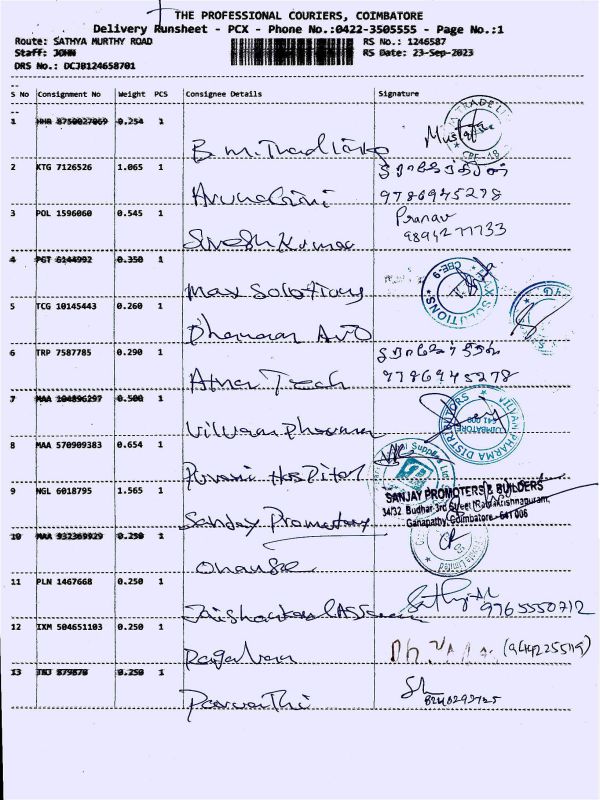 THE PROFESSIONAL COURIERS, COIMBATORE
Delivery Runsheet - PCX - Phone No.:0422-3505555 - Page No.:1
Route: SATHYA MURTHY ROAD RS No.: 1246587
Staff: JOHN RS Date: 23-Sep-2023
DRS No.: DCJ0124658701
S No Consignment No Weight PCS Consignee Details Signature
1 HHR 8750027069 0.254 1
B.M. Trad Mustafa
CBE-18
2 KTG 7126526 1.065 1
9786945278
3 POL 1596060 0.545 1 Pranav
9894277733
Suresh Kumar
4 PGT 6144992 0.350 1
Max Solutions MAX SOLUTIONS CBE-9
5 TCG 10145443 0.260 1
Auto
6 TRP 7587785 0.290 1
9786945278
Tech
7 MAA 104896297 0.500 1
Vilvam Pharma VILVAM PHARMA DISTRIBUTORS COIMBATORE
8 MAA 570909383 0.654 1
Purani Hospital
9 NGL 6018795 1.565 1 SANJAY PROMOTERS & BUILDERS
34/32, Budhar 3rd Street, Ramakrishnapuram,
Ganapathy, Coimbatore - 641 006
Sanjay Promoters
10 MAA 932369929 0.250 1
11 PLN 1467668 0.250 1 Sathya M
9765550712
12 IXM 504651103 0.250 1
(9442255119)
13 TNJ 879878 0.250 1
8248293725
Parvathi